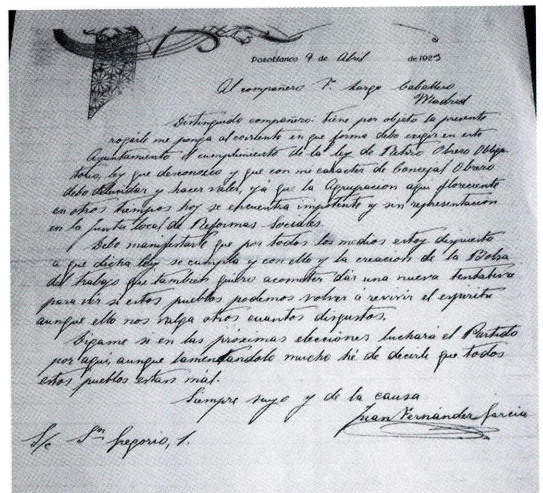 Pozoblanco 9 de Abril de 1923
Al compañero F. Largo Caballero
Madrid
Distinguido compañero: tiene por objeto la presente
rogarle me ponga al corriente en que forma debo exigir en este
Ayuntamiento el cumplimiento de la ley de Retiro Obrero Obliga
torio, ley que desconozco y que con mi caracter de Concejal Obrero
debo dilucidar y hacer valer, ya que la Agrupacion aqui floreciente
en otros tiempos hoy se encuentra impotente y sin representacion
en la Junta local de Reformas Sociales.
Debo manifestarle que por todos los medios estoy dispuesto
a que dicha ley se cumpla y con ello y la creacion de la Bolsa
del trabajo que tambien quiero acometer dar una nueva tentativa
para ver si estos pueblos podemos volver a revivir el espiritu
aunque ello nos valga otros cuantos disgustos.
Digame si en las próximas elecciones luchará el Partido
por aqui, aunque lamentandolo mucho hé de decirle que todos
estos pueblos estan mal.
Siempre suyo y de la causa
Juan Fernandez Garcia
S/c Sn Gregorio, 1.